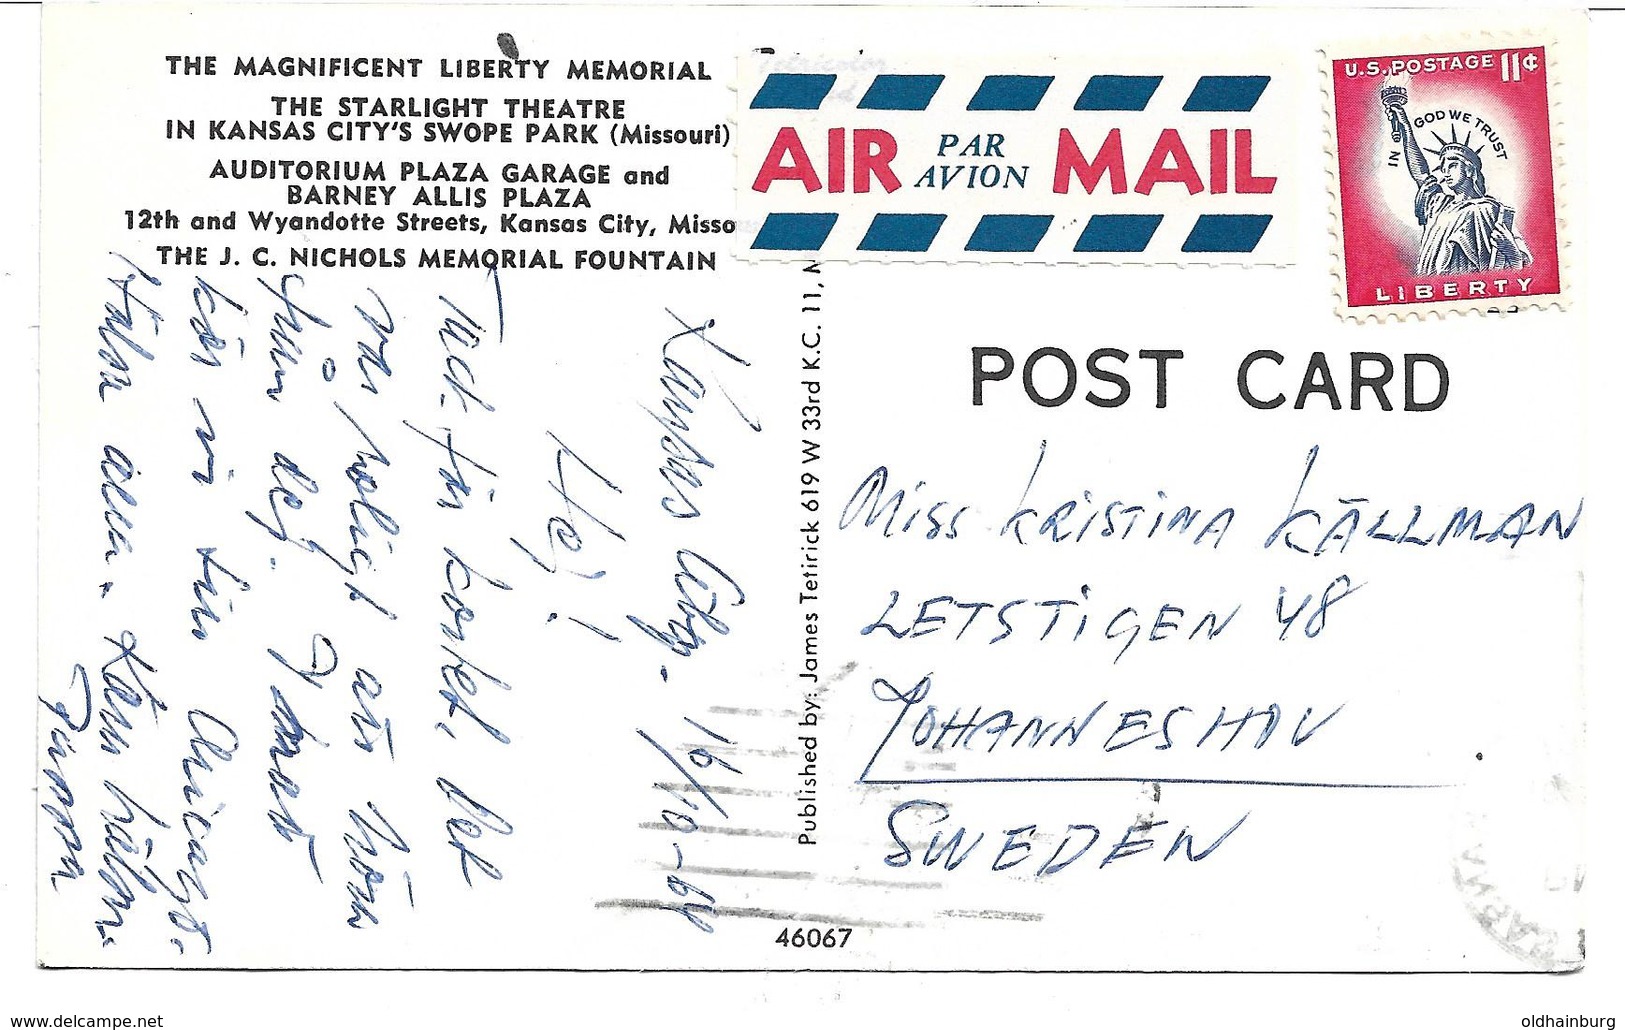 THE MAGNIFICENT LIBERTY MEMORIAL
THE STARLIGHT THEATRE
IN KANSAS CITY'S SWOPE PARK (Missouri)
AUDITORIUM PLAZA GARAGE and
BARNEY ALLIS PLAZA
12th and Wyandotte Streets, Kansas City, Misso
THE J. C. NICHOLS MEMORIAL FOUNTAIN
AIR PAR AVION MAIL
U.S. POSTAGE 11¢
IN GOD WE TRUST
LIBERTY
POST CARD
Published by: James Tetrick 619 W 33rd K.C. 11, M
Kansas City. 16/10-64
Hej!
Tack för kortet. Det
var roligt att höra
från dig. I morse
kör vi till Chicago.
Hälsa alla. Kram hälsn.
MISS KRISTINA KÄLLMAN
LETSTIGEN 48
JOHANNESHOV
SWEDEN
46067
www.delcampe.net
oldhainburg